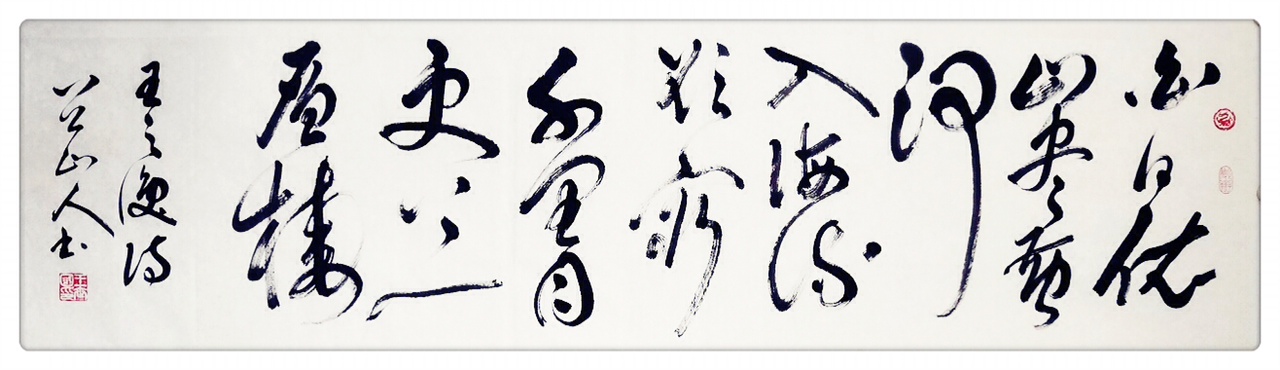 白日依
山尽黄
河
入海流
欲穷
千里目
更上一
层楼
王之涣诗
八公山人书